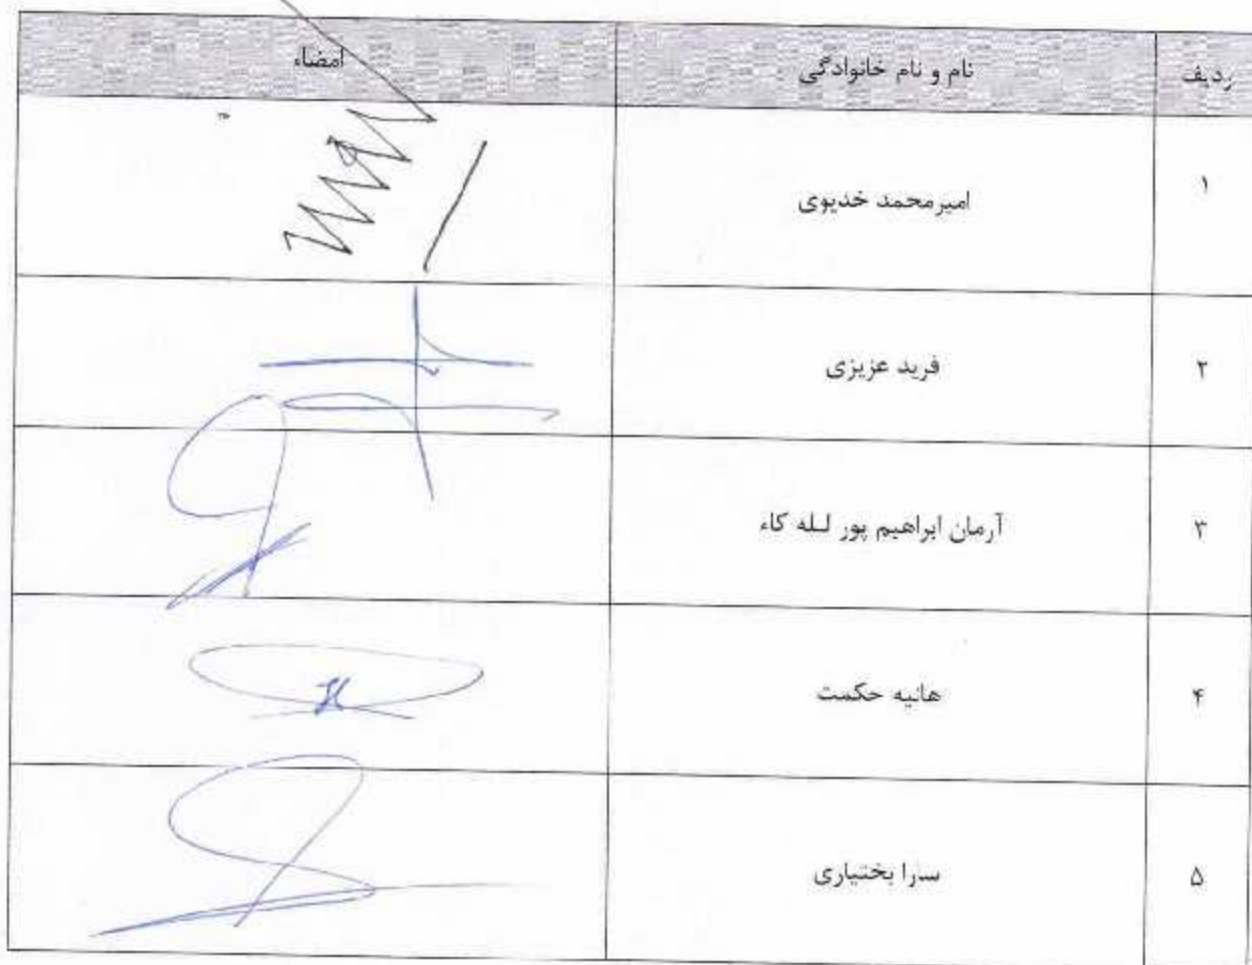 ردیف نام و نام خانوادگی امضاء
۱ امیرمحمد خدیوی
۲ فرید عزیزی
۳ آرمان ابراهیم پور لله کاء
۴ هانیه حکمت
۵ سارا بختیاری